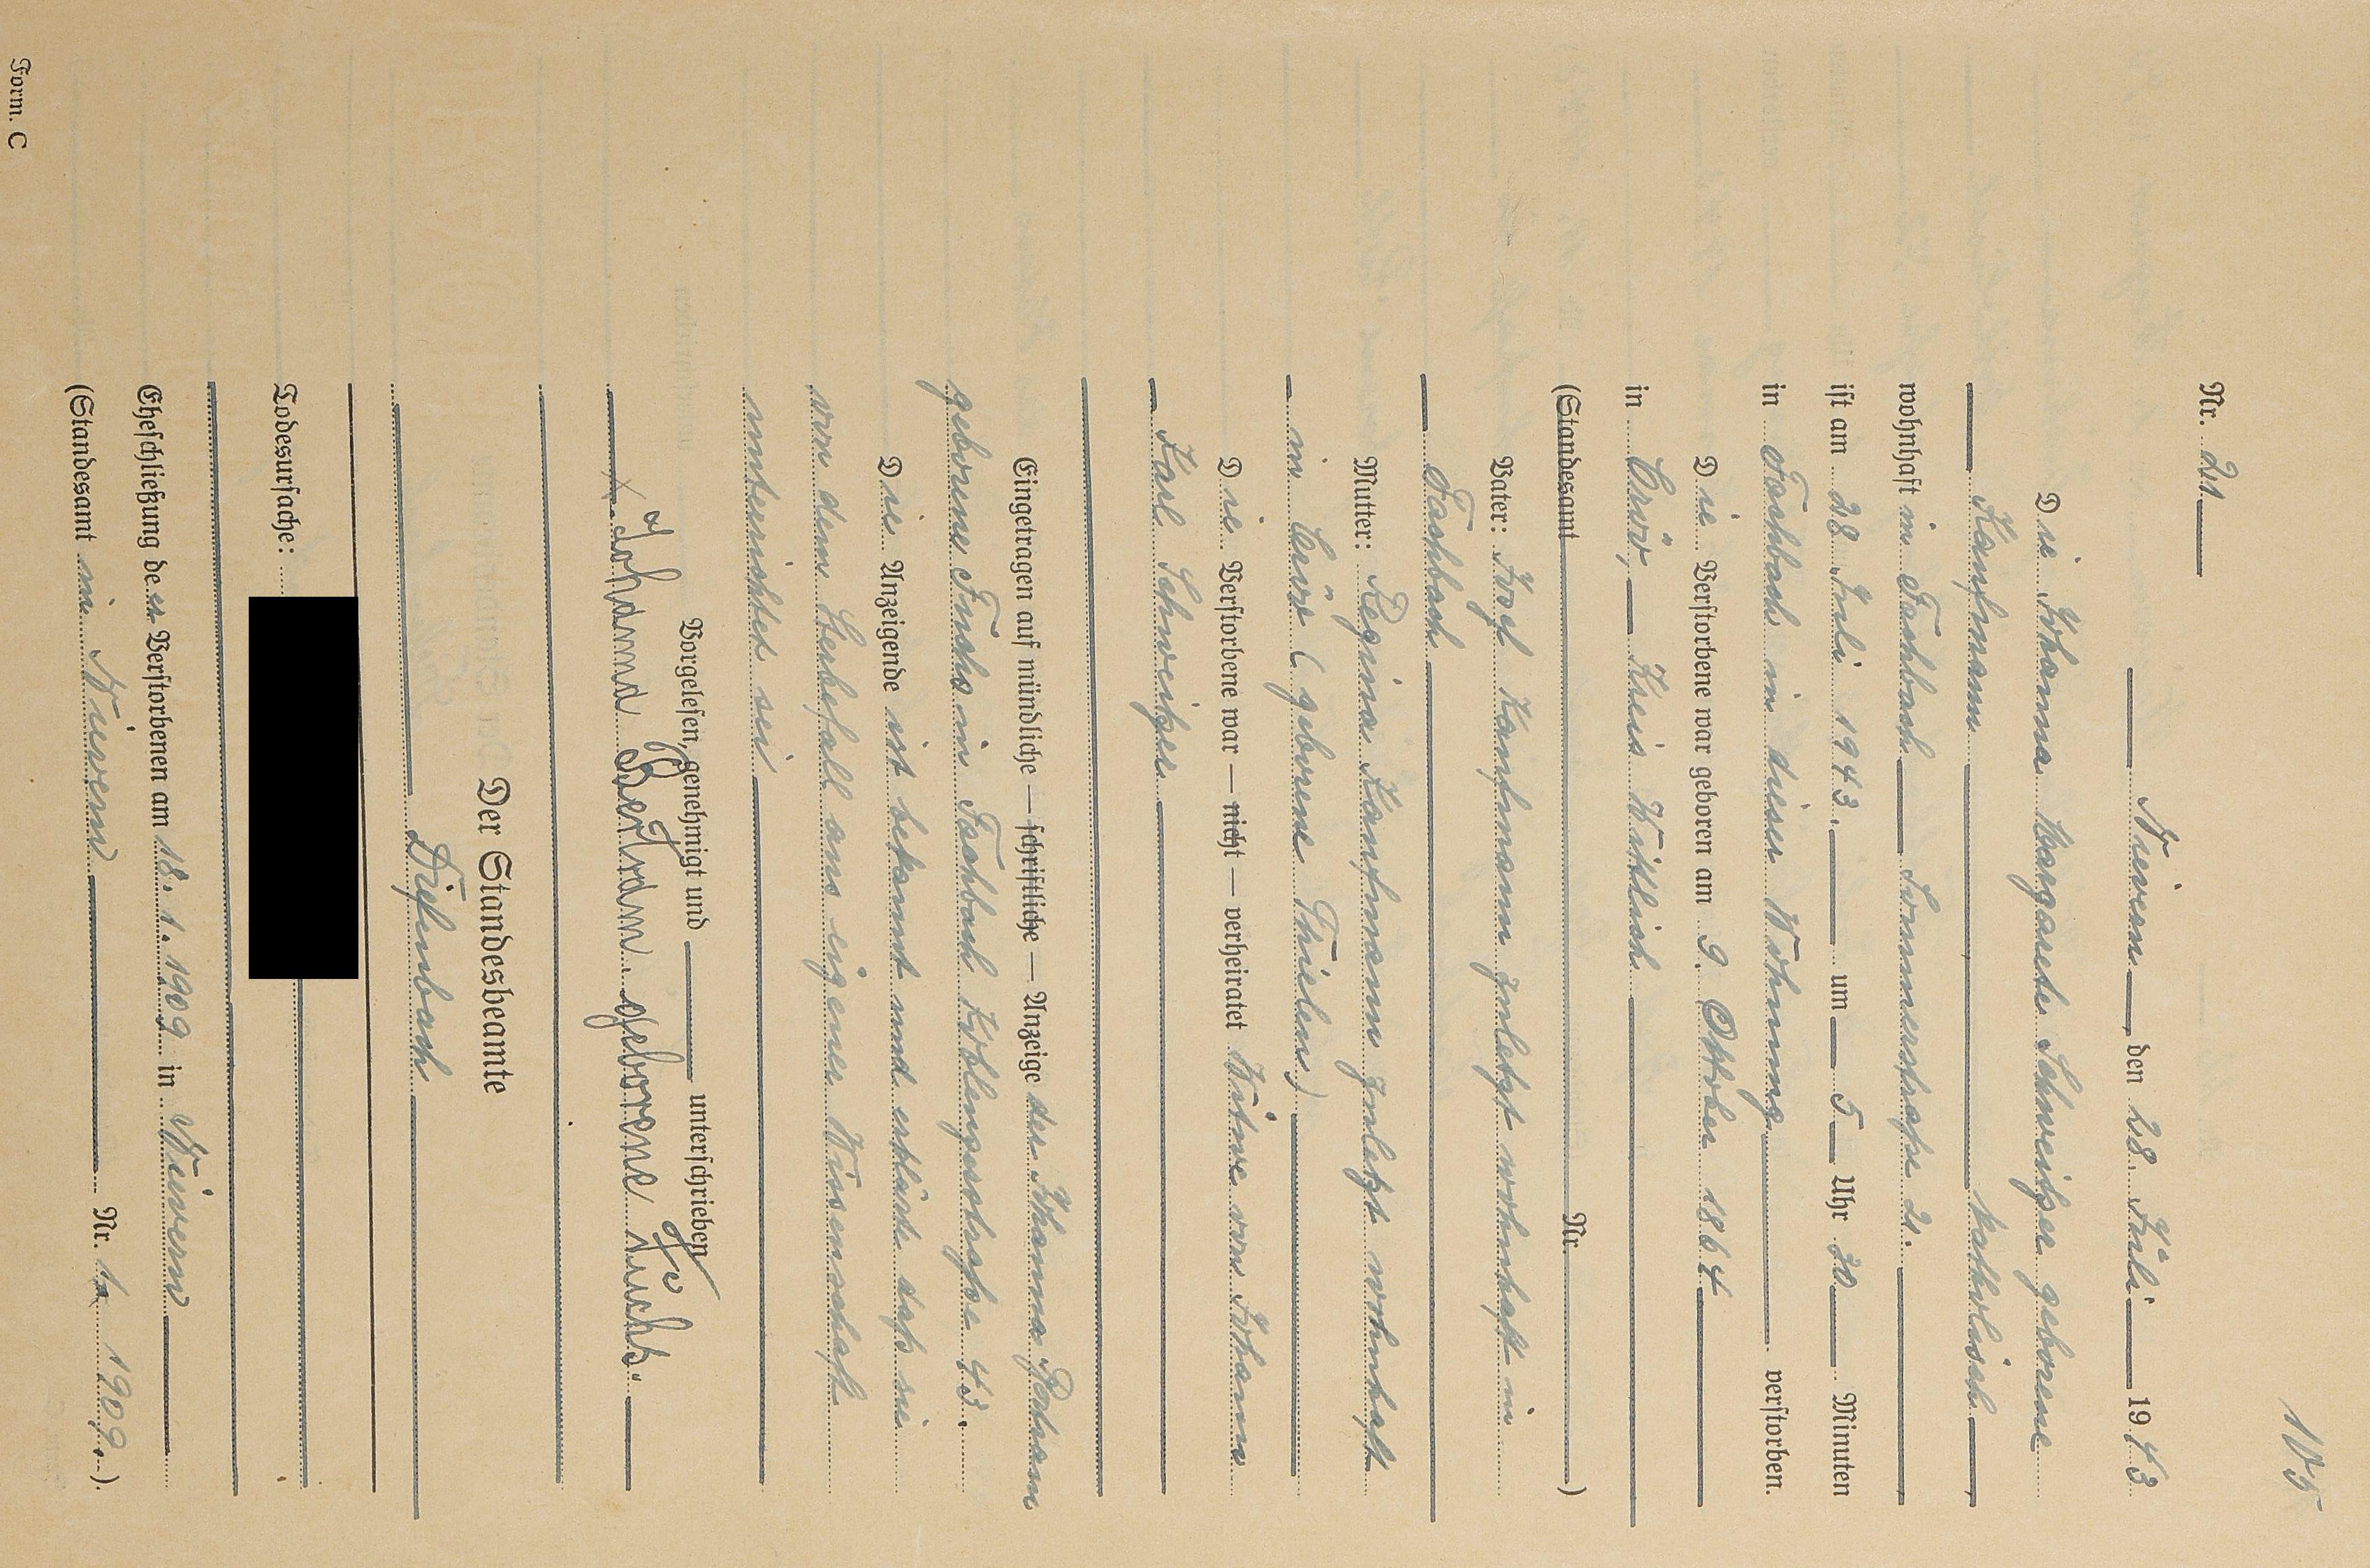 105
Nr. 21
Nievern, den 28. Juli 1943
Die Johanna Margarete Schweitzer geborene
Kaufmann katholisch
wohnhaft in Fachbach Sommerstraße 21.
ist am 28 Juli 1943. um 5 Uhr 30 Minuten
in Fachbach in dieser Wohnung verstorben.
Die Verstorbene war geboren am 9. Oktober 1864
in Cröv, Kreis Wittlich
(Standesamt Nr. )
Vater: Kaufmann zuletzt wohnhaft in
Fachbach
Mutter: Regina Kaufmann zuletzt wohnhaft
in Cröv (geborene Thielen)
Die Verstorbene war — nicht — verheiratet Witwe von Johann
Karl Schweitzer
Eingetragen auf mündliche — schriftliche — Anzeige der Johanna Bertram
geborene Fuchs in Fachbach Koblenzerstraße 43.
Die Anzeigende ist bekannt und erklärte daß sie
von dem Sterbefall aus eigener Wissenschaft
unterrichtet sei
Vorgelesen, genehmigt und unterschrieben
x Johanna Bertram. geborene Fuchs.
Der Standesbeamte
Diefenbach
Todesursache:
Eheschließung der Verstorbenen am 18. 1. 1909 in Nievern
(Standesamt in Nievern Nr. 1909.)
Form. C